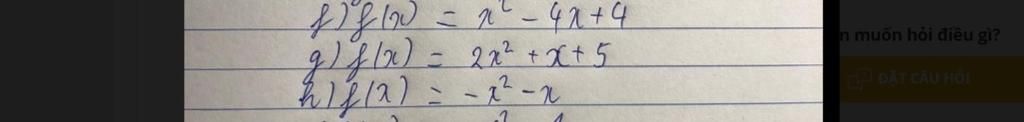 f) f(x) = x² - 4x + 4
g) f(x) = 2x² + x + 5
h) f(x) = -x² - x
n muốn hỏi điều gì?
ĐẶT CÂU HỎI